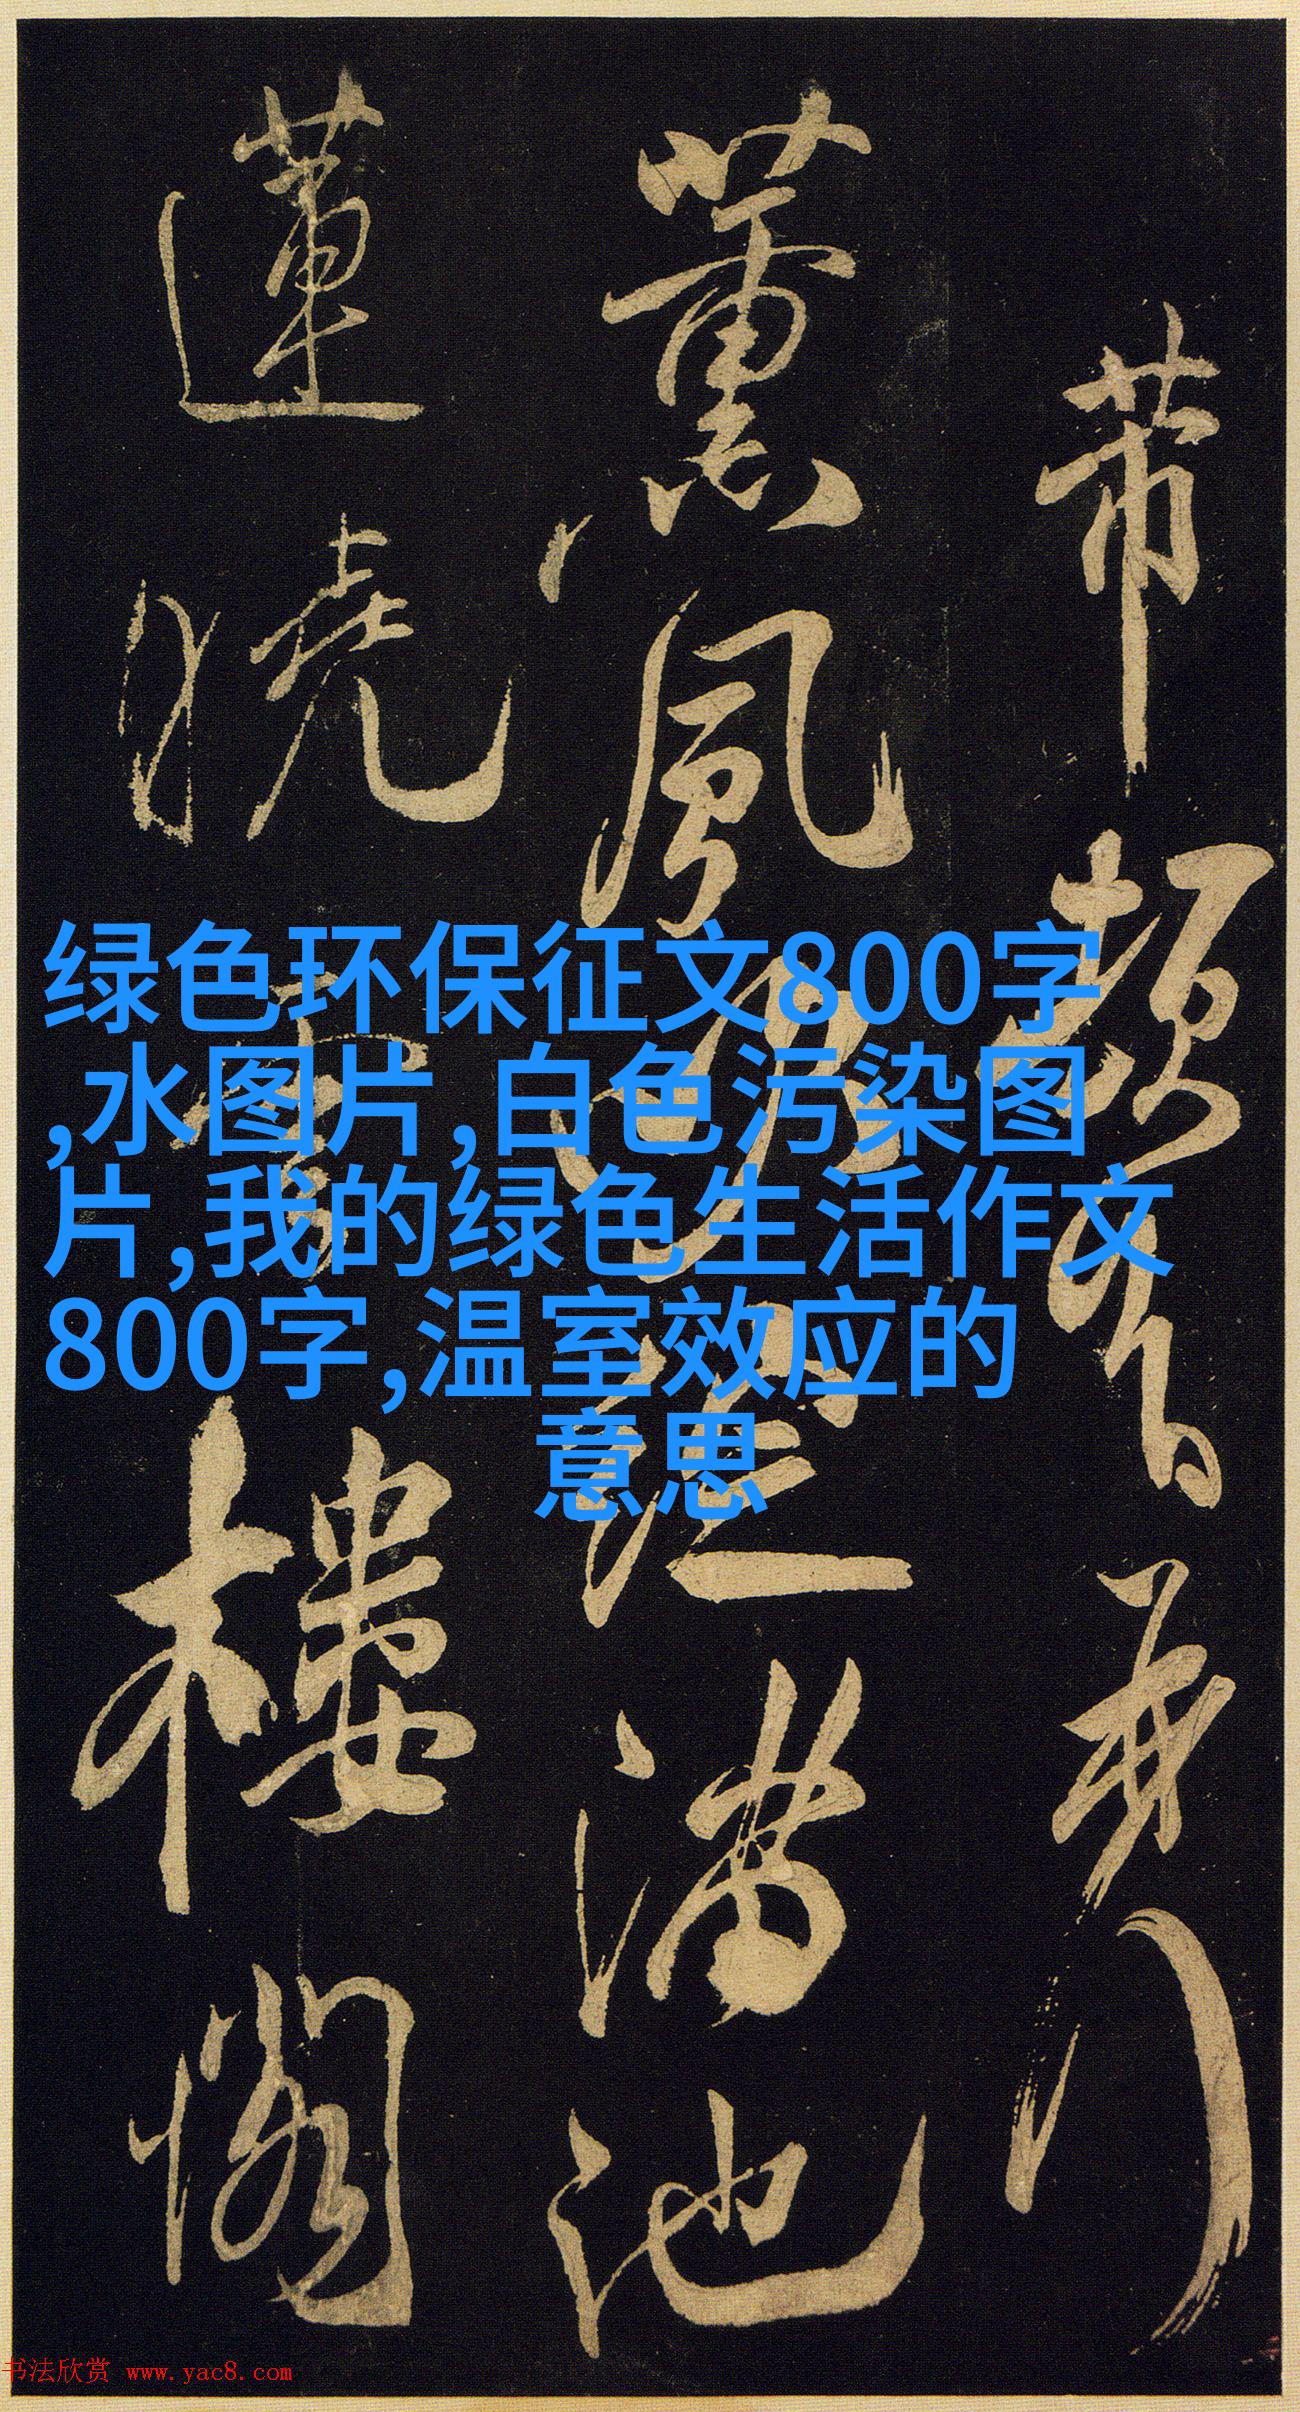 带頻香舞
薰風池送滿池
蓮曉雲樓閣
绿色环保征文800字
,水图片,白色污染图
片,我的绿色生活作文
800字,温室效应的
意思
书法欣赏 www.yac8.com